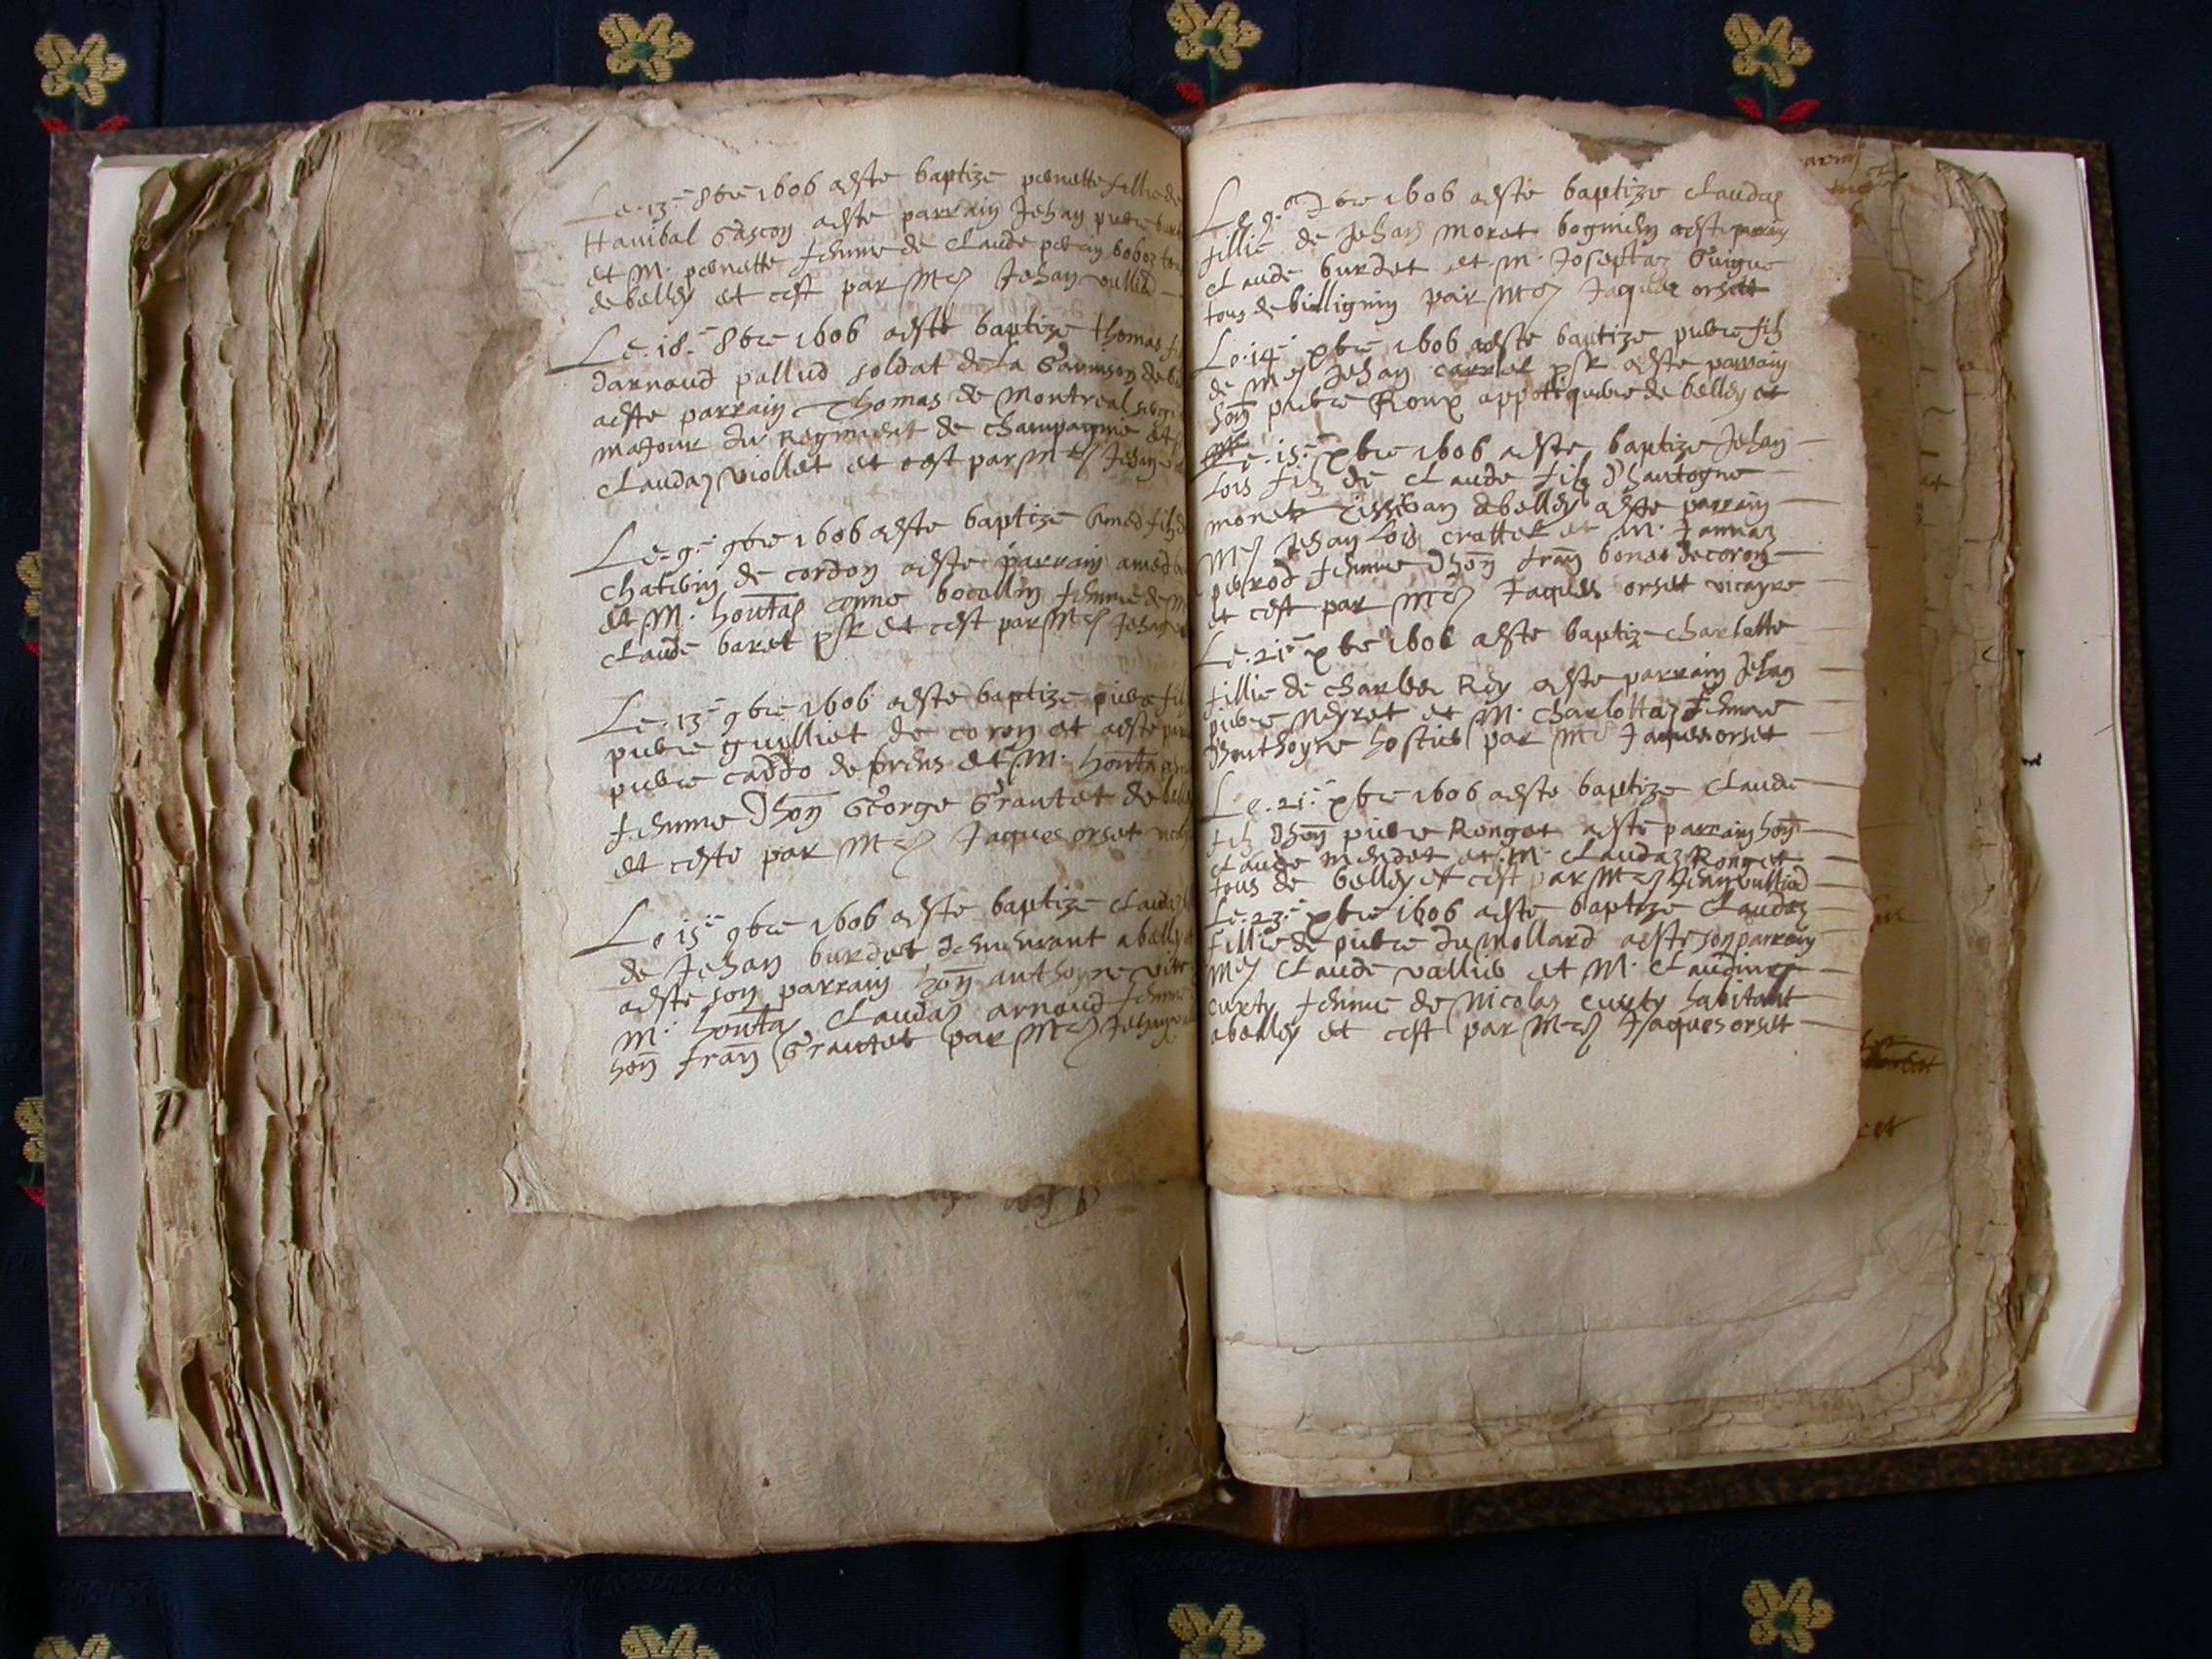 Le 13e 8bre 1606 a este baptize pernette fillie de
Hanibal Gascon a este parrain Jehan pierre
et M. pernette femme de Claude perrin boboz
de belley et cest par Mre Jehan vulliod
Le 18e 8bre 1606 a este baptize thomas
darnaud pallud soldat de la Garnison de
a este parrain Thomas de Montreal
majour du Regiment de champagnie et
Claudaz viollet et cest par Mre Jehan
Le 9e 9bre 1606 a este baptize Amed filz
de cordon a este parrain amed
et M. honntaz bocellin femme de
Claude baret psr et cest par Mre Jehan
Le 13e 9bre 1606 a este baptize pierre
pierre guilliet de coron et a este
pierre caddo de prens et M. honnta
femme dhon George Grantet de
et ceste par Mre Jaques orset
Le 15e 9bre 1606 a este baptize Claudaz
de Jehan burdet demeurant a belley
a este son parrain hon anthoyne
M. honnta Claudaz arnaud femme
hon fran Grantet par Mre Jehan
Le 9e 1606 a este baptize Claudaz
fillie de Jehan moret a este parrain
Claude burdet et M. Joseptaz Guigue
tous de billignin par Mre Jaques orset
Le 14e xbre 1606 a este baptize pierre filz
de Mre Jehan carrel psr a este parrain
hon pierre Roux appotiquere de belley et
Le 15e xbre 1606 a este baptize Jehan
Lois filz de Claude filz dhantogne
monet Tissiran de belley a este parrain
Mre Jehan Lois crettet et M. Jannaz
perrod femme dhon fran bonet de coron
et cest par Mre Jaques orset vicayre
Le 21e xbre 1606 a este baptize charlotte
fillie de charles Rey a este parrain Jehan
pierre Neyret et M. charlottaz femme
dhanthoyne hostie par Mre Jaques orset
Le 21e xbre 1606 a este baptize Claude
filz dhon pierre Ronget a este parrain hon
Claude mendet et M. Claudaz Ronget
tous de belley et cest par Mre Jehan vulliod
Le 23e xbre 1606 a este baptize Claudaz
fillie de pierre du mollard a este son parrain
Mre Claude vallie et M. Claudine
curty femme de Nicolas curty habitant
a belley et cest par Mre Jaques orset